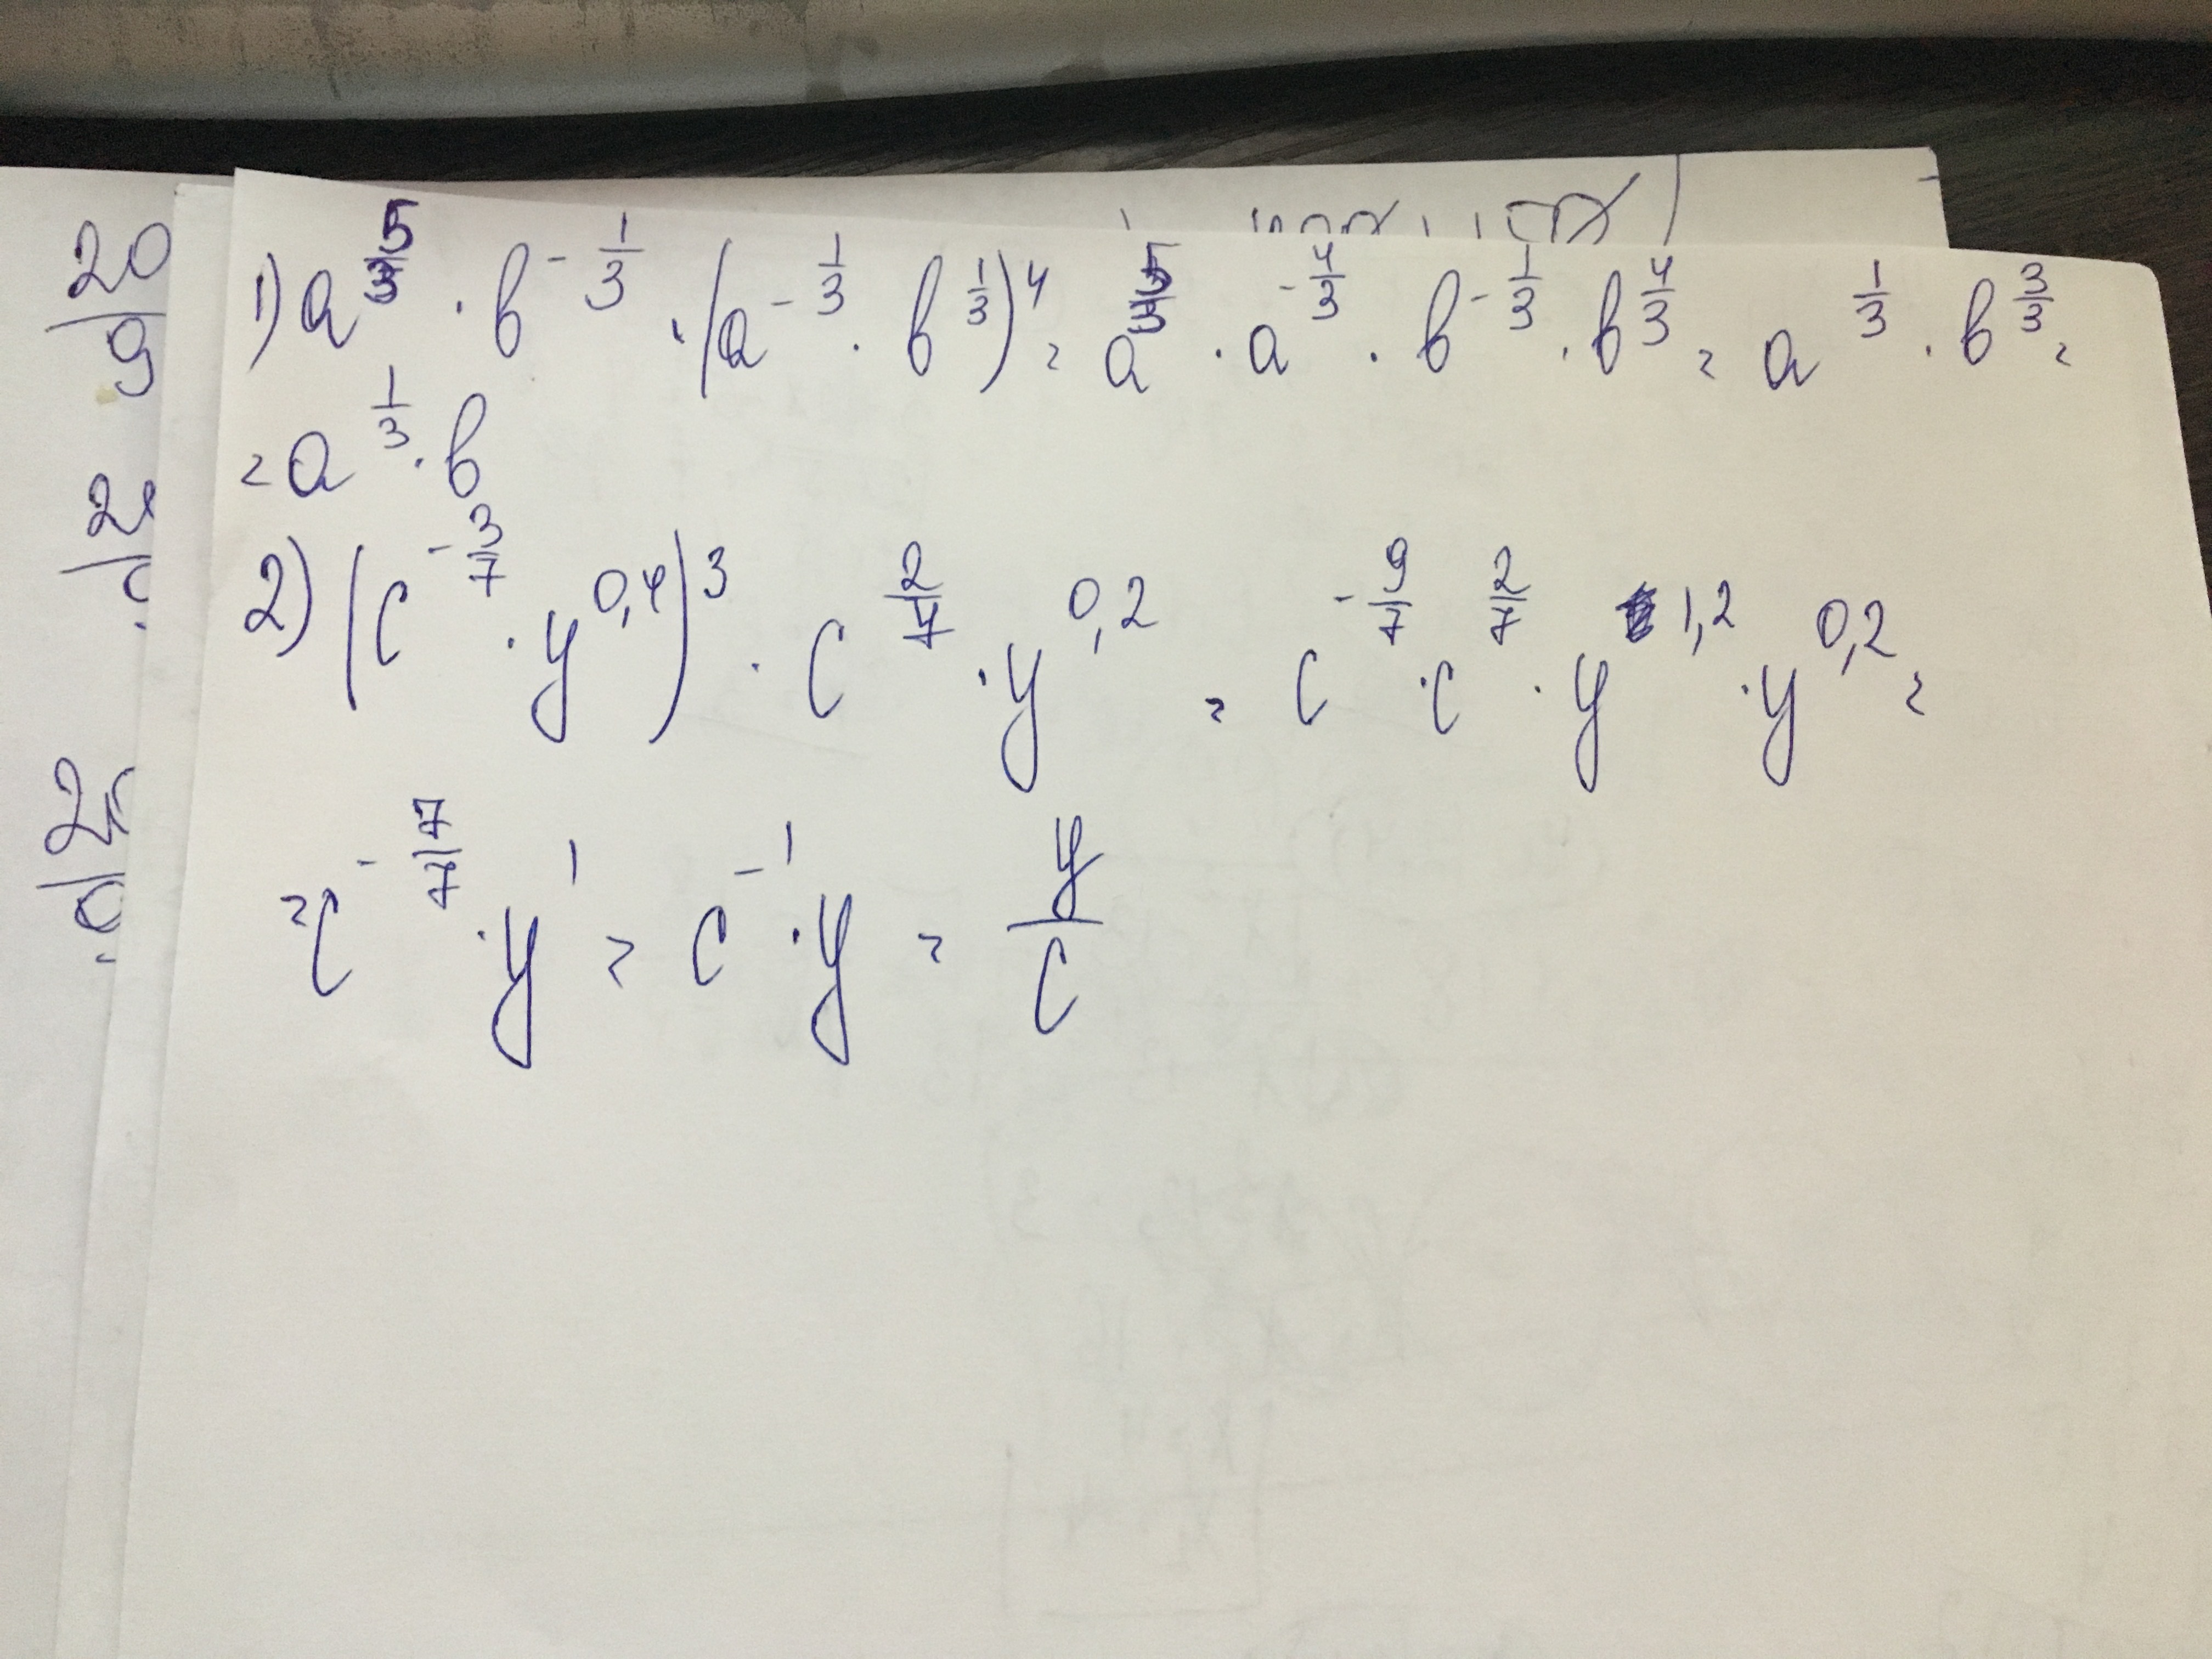 1) a^(5/3) · b^(-1/3) · (a^(-1/3) · b^(1/3))^4 = a^(5/3) · a^(-4/3) · b^(-1/3) · b^(4/3) = a^(1/3) · b^(3/3) =
= a^(1/3) · b
2) (c^(-3/7) · y^(0,4))^3 · c^(2/7) · y^(0,2) = c^(-9/7) · c^(2/7) · y^(1,2) · y^(0,2) =
= c^(-7/7) · y^1 = c^(-1) · y = y/c
20/9
2
2